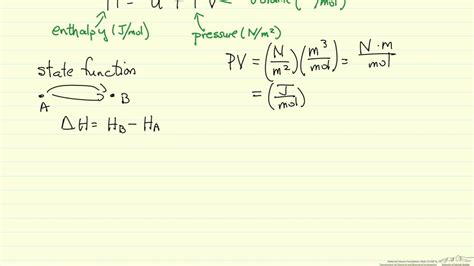 H = U + PV ← volume (m³/mol)
enthalpy (J/mol)
pressure (N/m²)
state function
A B
ΔH = H_B - H_A
PV = (N/m²)(m³/mol) = N·m/mol
= (J/mol)